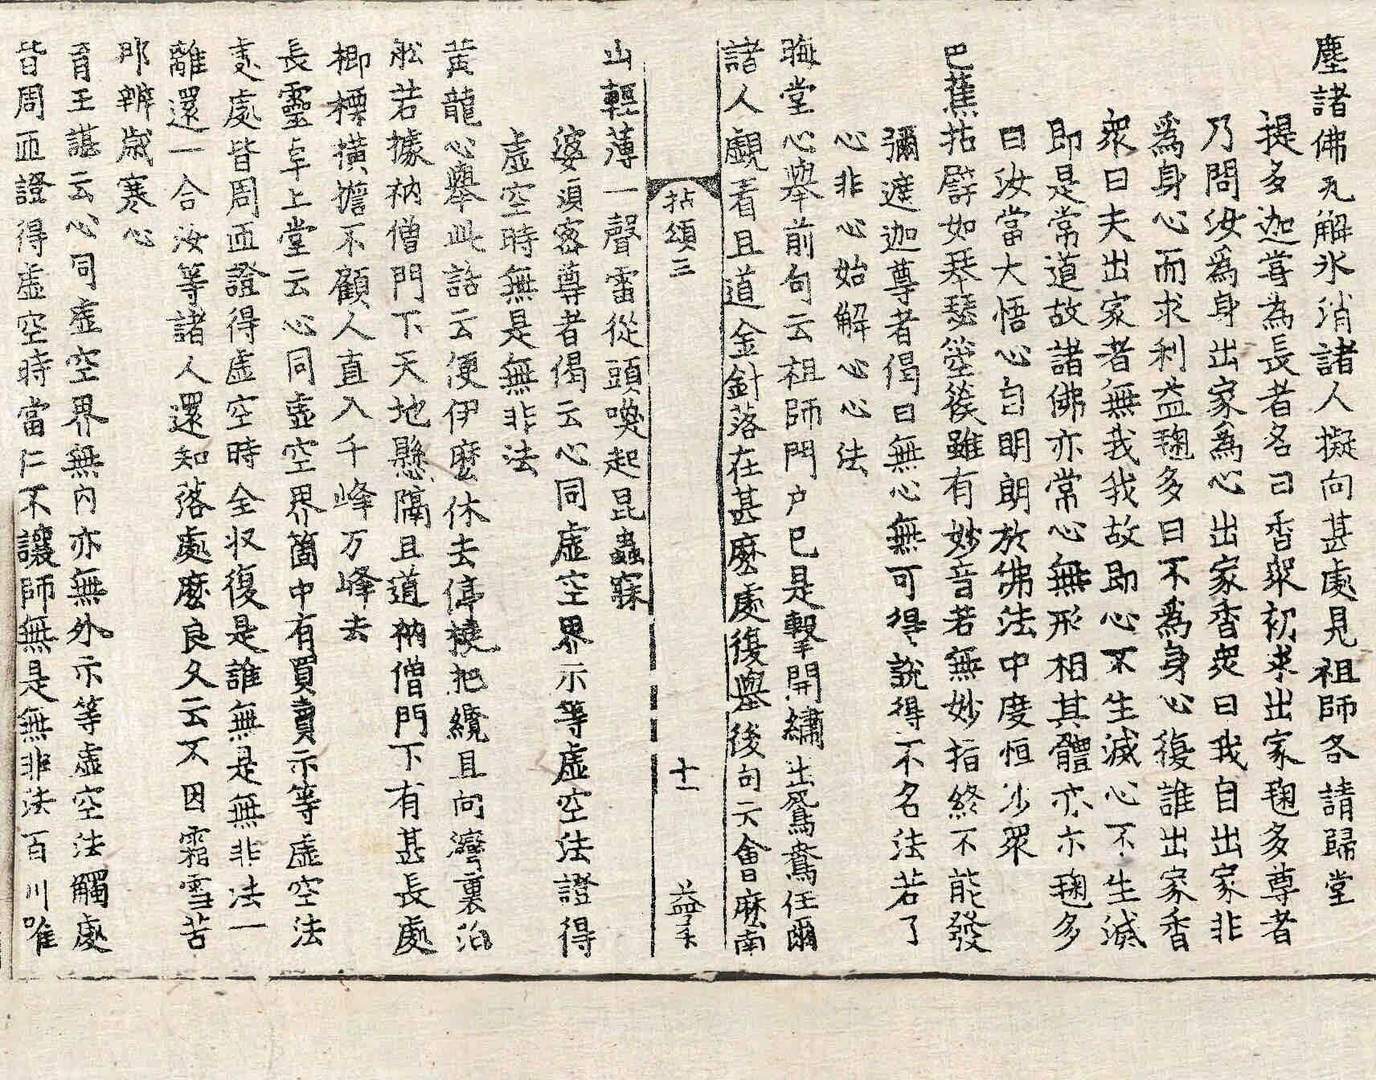 塵諸佛瓦解氷消諸人擬向甚處見祖師各請歸堂
提多迦尊為長者名曰香衆初求出家毱多尊者
乃問汝爲身出家為心出家香衆曰我自出家非
爲身心而求利益毱多曰不爲身心復誰出家香
衆曰夫出家者無我我故即心不生滅心不生滅
即是常道故諸佛亦常心無形相其體亦亦毱多
曰汝當大悟心自明朗於佛法中度恒沙衆
巴蕉拈譬如琴瑟箜篌雖有妙音若無妙指終不能發
彌遮迦尊者偈曰無心無可得說得不名法若了
心非心始解心心法
晦堂心舉前句云祖師門户巳是擊開繡出鴛鴦任爾
諸人覷看且道金針落在甚麽處復舉後句云會麽南
拈頌三 十一 益子
山輕薄一聲雷從頭喚起昆蟲寐
婆須密尊者偈云心同虛空界示等虛空法證得
虛空時無是無非法
黃龍心舉此話云便伊麽休去停橈把纜且向灣裏泊
舩若據衲僧門下天地懸隔且道衲僧門下有甚長處
楖𣗖橫擔不顧人直入千峰万峰去
長靈卓上堂云心同虛空界箇中有買賣示等虛空法
處處皆周匝證得虛空時全収復是誰無是無非法一
離還一合汝等諸人還知落處麽良久云不因霜雪苦
那辨歲寒心
育王諶云心同虛空界無内亦無外示等虛空法觸處
皆周匝證得虛空時當仁不讓師無是無非法百川唯